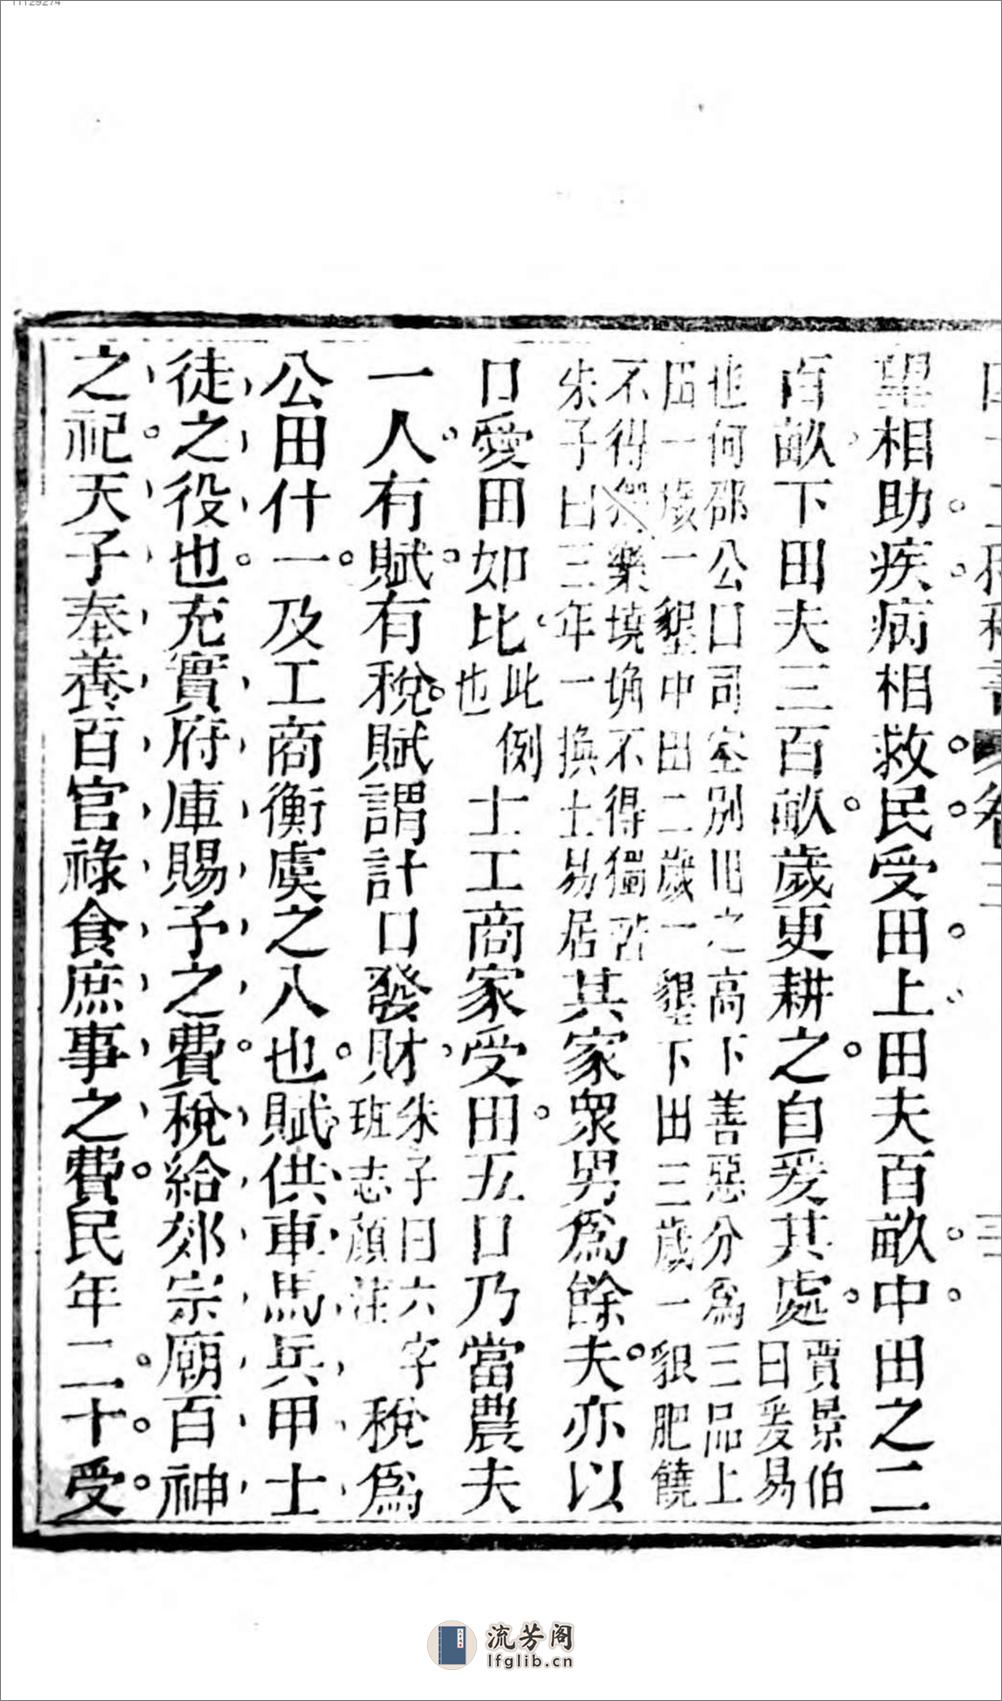 望相助疾病相救民受田上田夫百畝中田之二
百畝下田夫三百畝歲更耕之自爰其處賈景伯曰爰易
也何邵公曰司空別田之高下善惡分爲三品上
田一歲一墾中田二歲一墾下田三歲一墾肥饒
不得獨樂墝埆不得獨苦
朱子曰三年一換土易居其家衆男爲餘夫亦以
口受田如比此例也士工商家受田五口乃當農夫
一人有賦有稅賦謂計口發財朱子曰六字班志顔注稅爲
公田什一及工商衡虞之入也賦供車馬兵甲士
徒之役也充實府庫賜予之費稅給郊宗廟百神
之祀天子奉養百官祿食庶事之費民年二十受
流芳阁
lfglib.cn